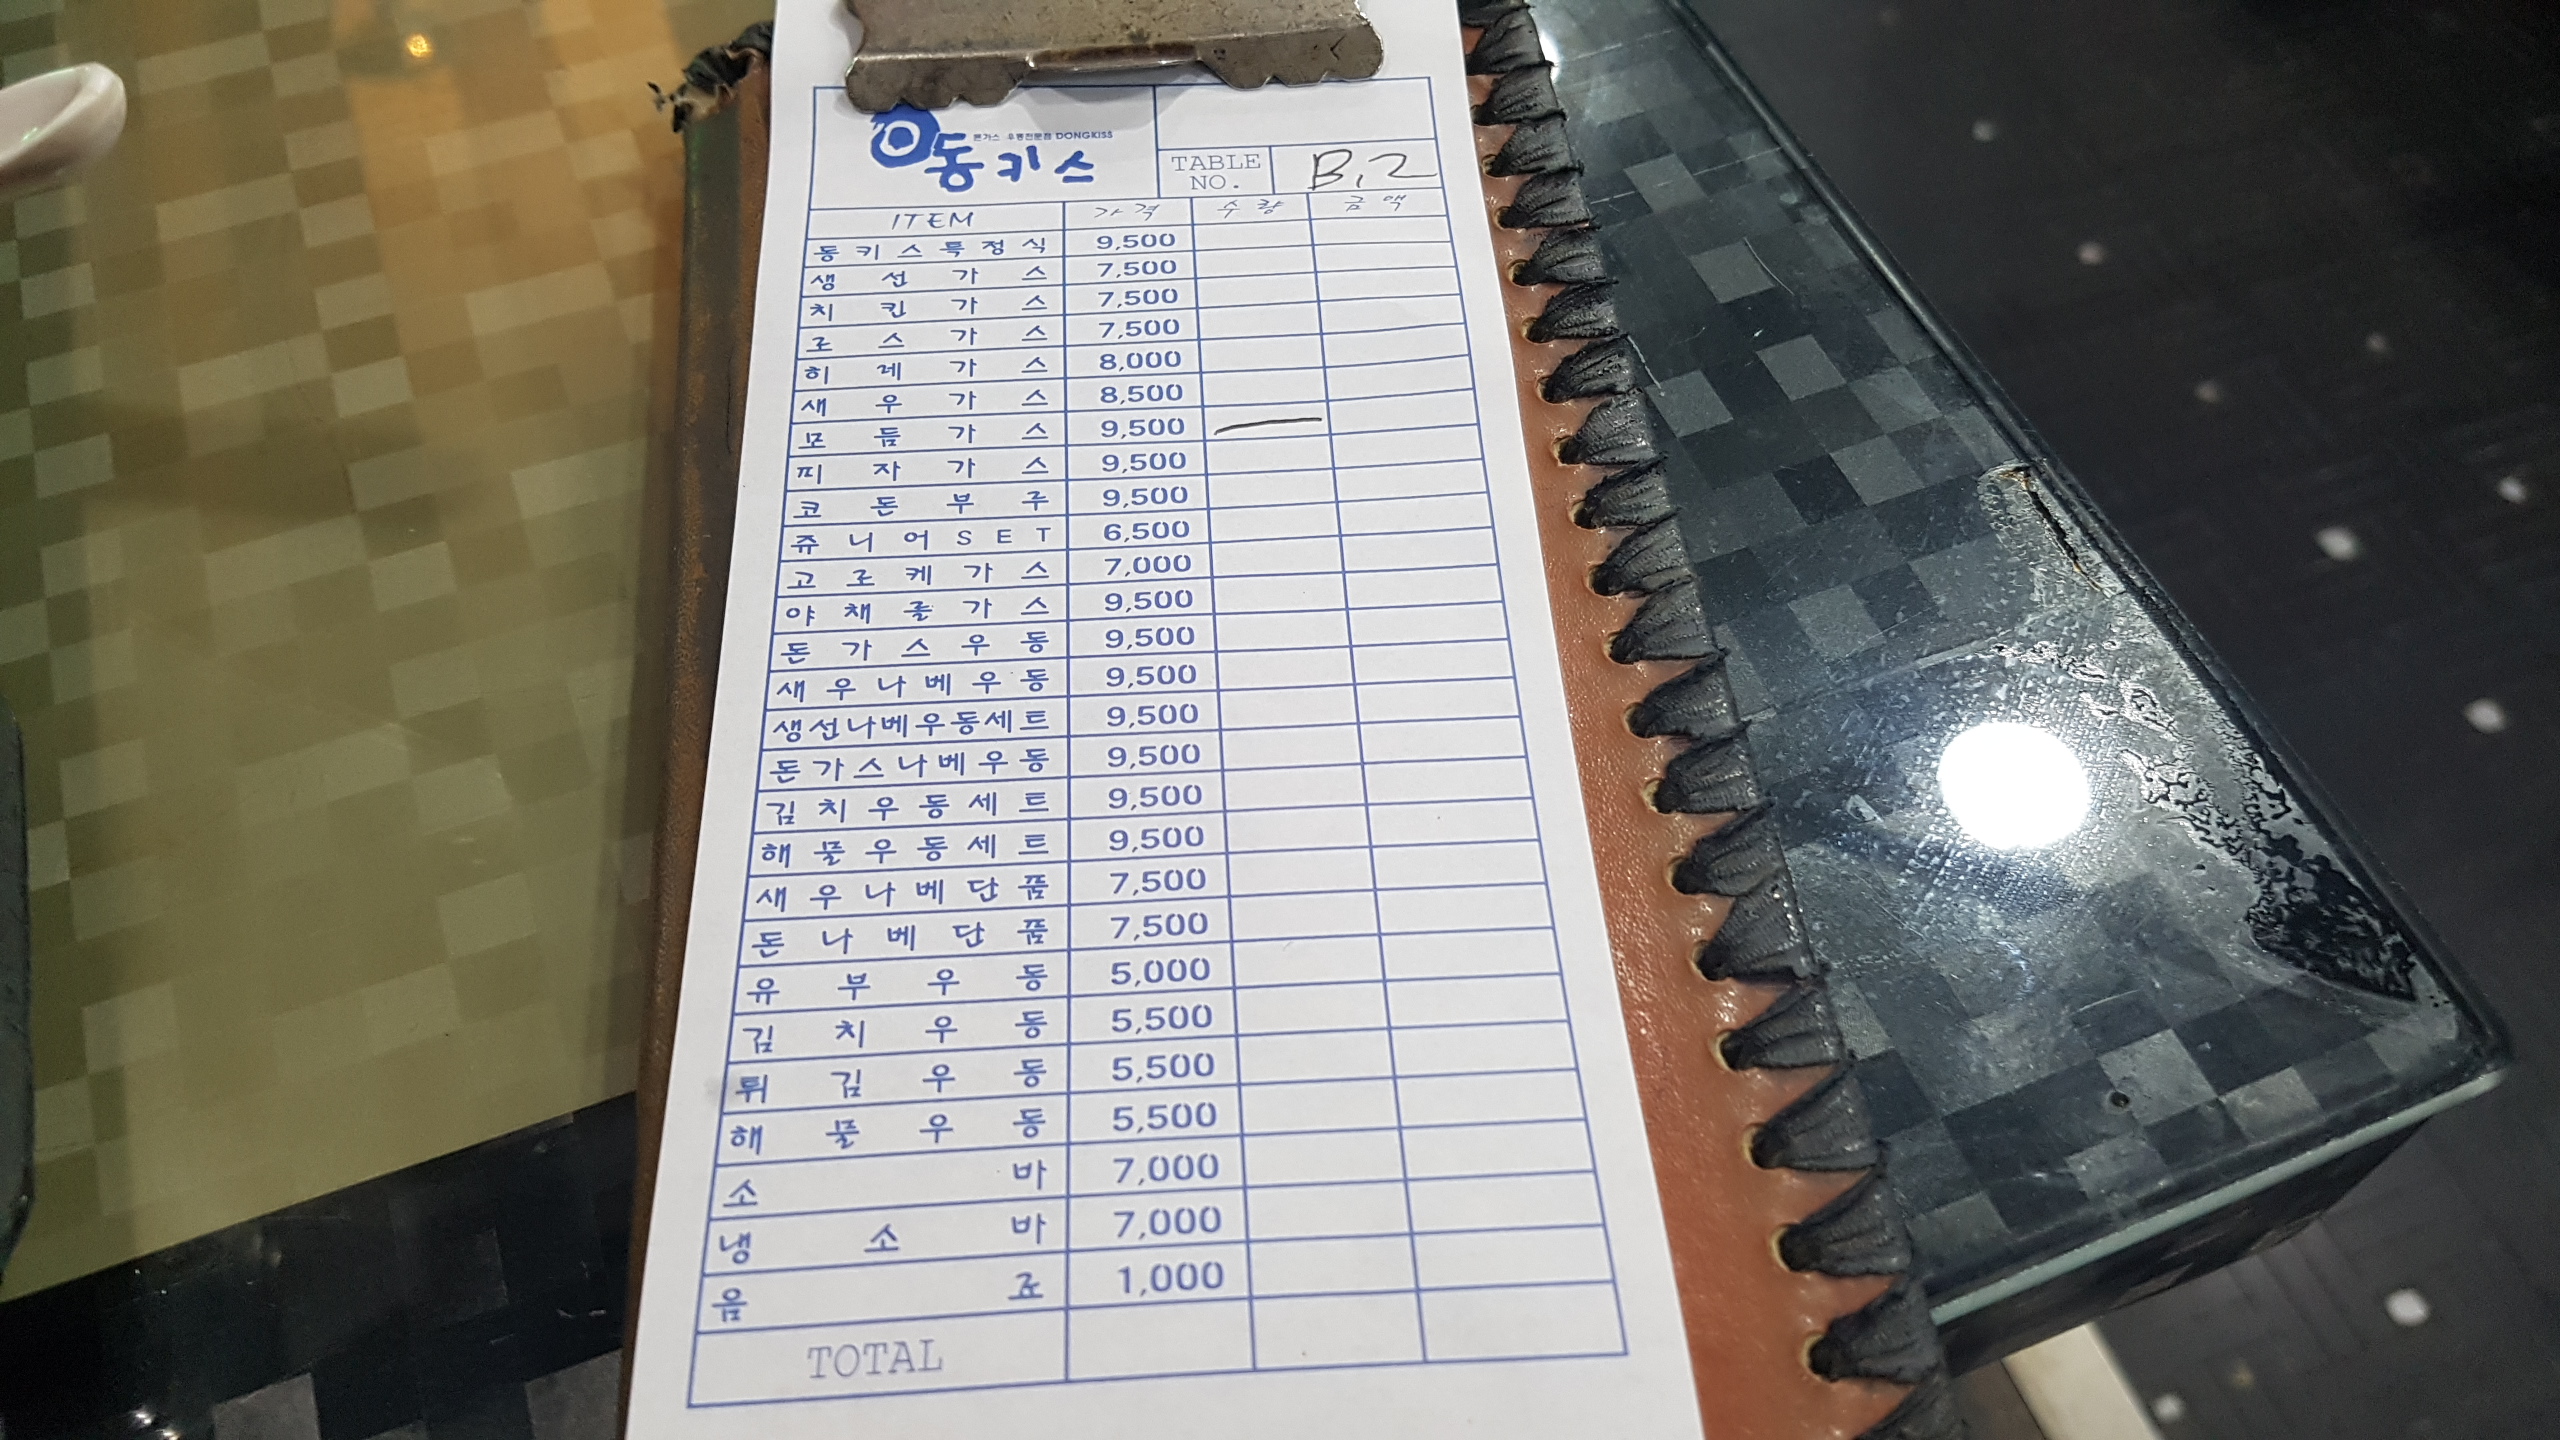 돈가스 우동전문점 DONGKISS
동키스
TABLE NO. B,2
ITEM 가격 수량 금액
동키스특정식 9,500
생선가스 7,500
치킨가스 7,500
로스가스 7,500
히레가스 8,000
새우가스 8,500
모듬가스 9,500 —
피자가스 9,500
코돈부루 9,500
쥬니어SET 6,500
고로케가스 7,000
야채롤가스 9,500
돈가스우동 9,500
새우나베우동 9,500
생선나베우동세트 9,500
돈가스나베우동 9,500
김치우동세트 9,500
해물우동세트 9,500
새우나베단품 7,500
돈나베단품 7,500
유부우동 5,000
김치우동 5,500
튀김우동 5,500
해물우동 5,500
소바 7,000
냉소바 7,000
음료 1,000
TOTAL